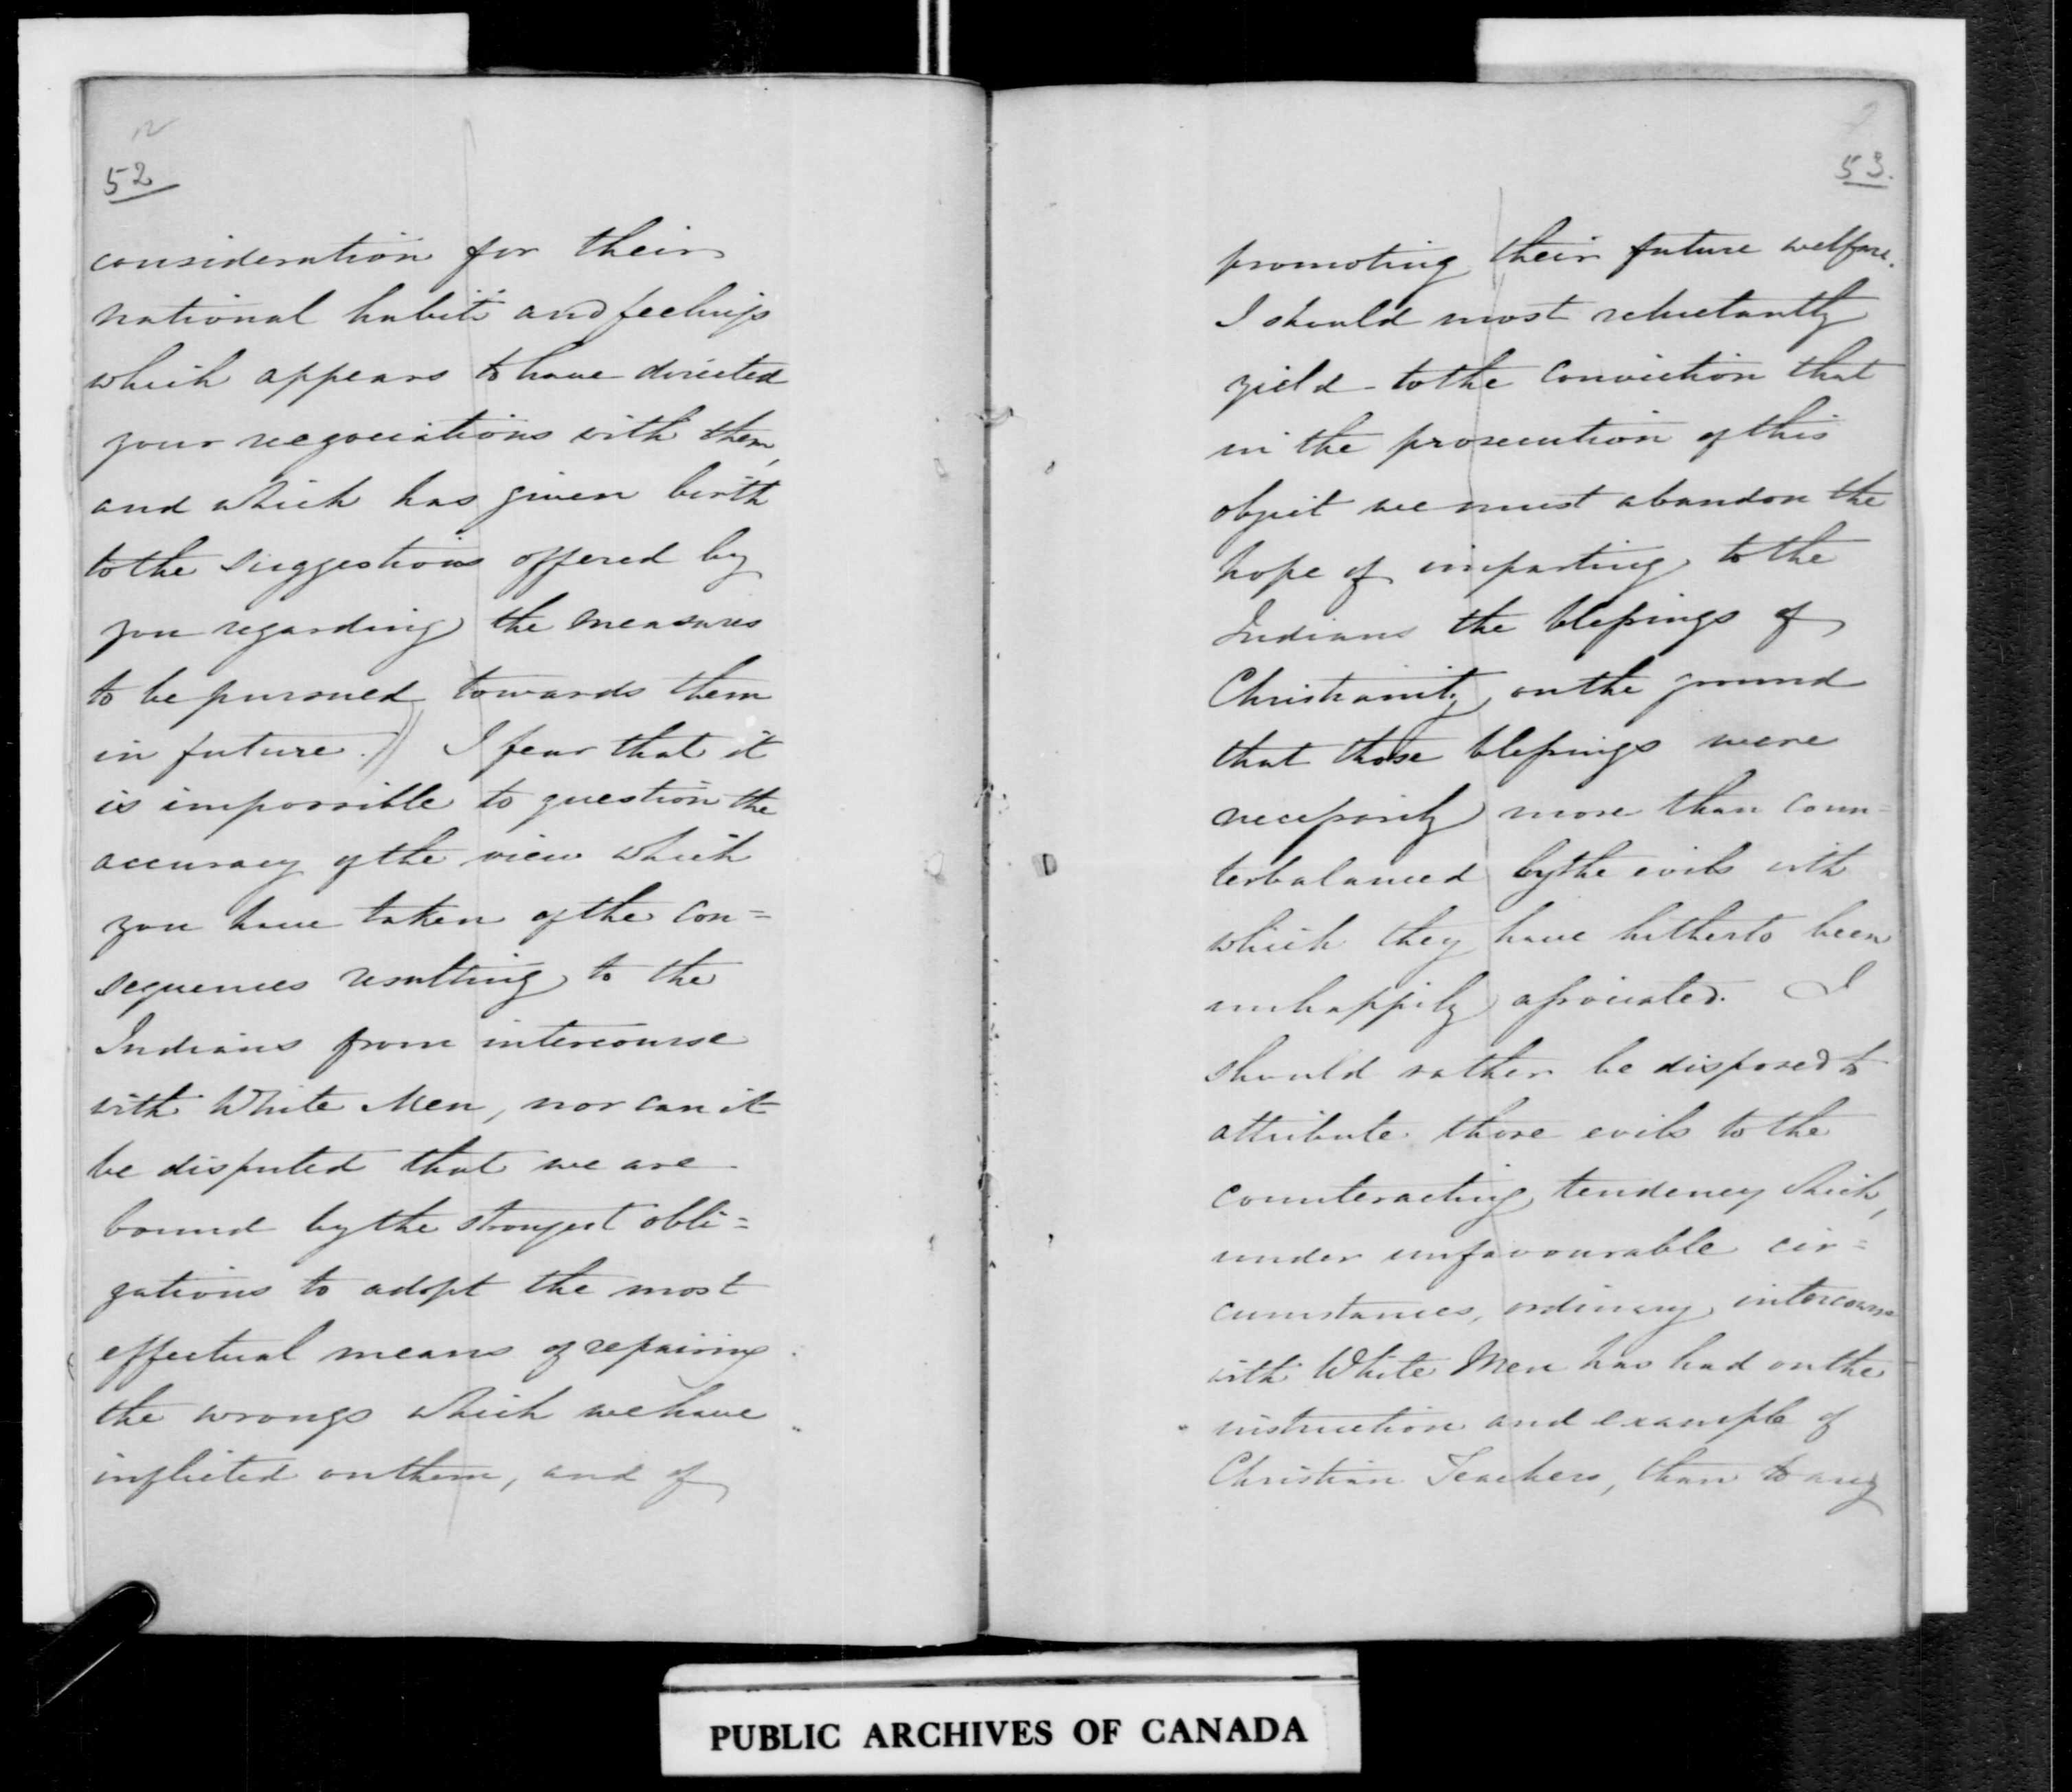 52
consideration for their
national habits and feelings
which appears to have directed
your negociations with them,
and which has given birth
to the suggestions offered by
you regarding the measures
to be pursued towards them
in future.)) I fear that it
is impossible to question the
accuracy of the view which
you have taken of the con=
sequences resulting to the
Indians from intercourse
with White Men, nor can it
be disputed that we are
bound by the strongest obli=
gations to adopt the most
effectual means of repairing
the wrongs which we have
inflicted on them, and of
53.
promoting their future welfare.
I should most reluctantly
yield to the conviction that
in the prosecution of this
object we must abandon the
hope of imparting to the
Indians the blessings of
Christianity, on the ground
that those blessings were
necessarily more than coun=
terbalanced by the evils with
which they have hitherto been
unhappily associated. I
should rather be disposed to
attribute those evils to the
counteracting tendency which,
under unfavourable cir=
cumstances, ordinary intercourse
with White Men has had on the
instruction and example of
Christian Teachers, than to any
PUBLIC ARCHIVES OF CANADA